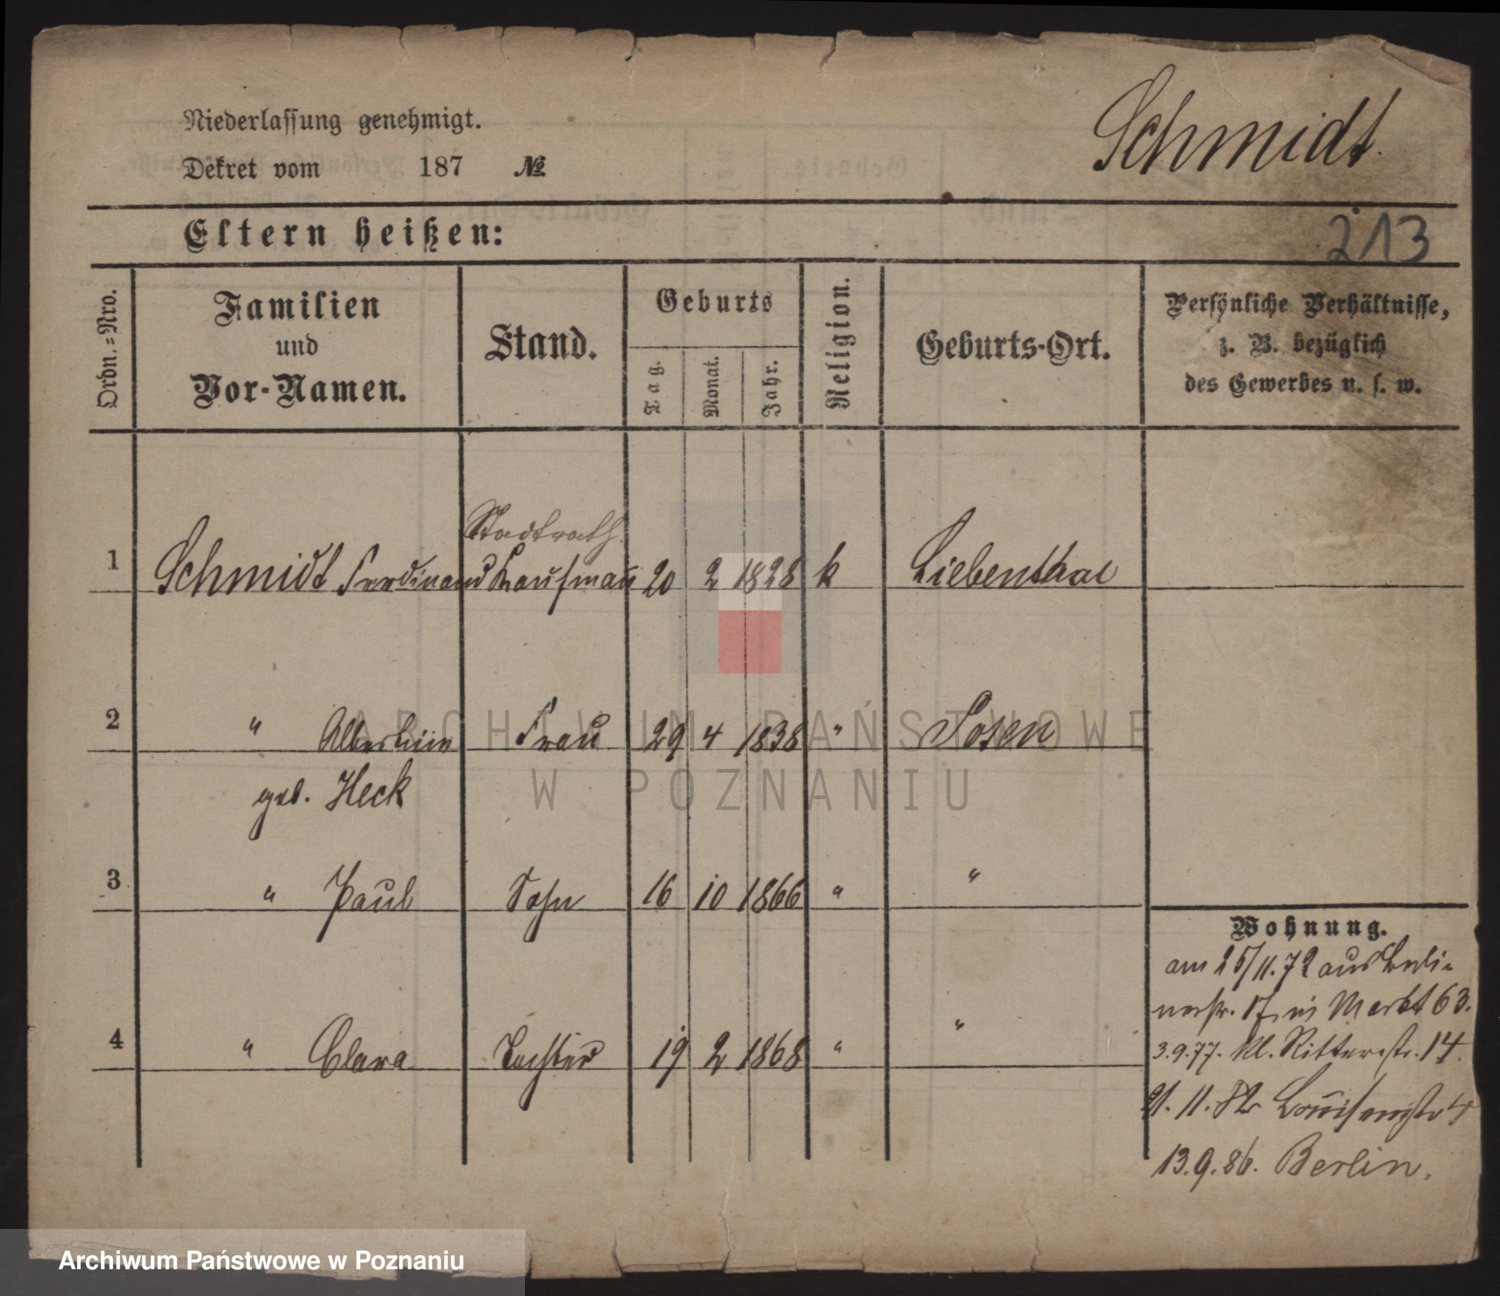 Niederlassung genehmigt.
Dekret vom 187 №
Schmidt.
Eltern heißen:
213
Ordn.-Nro.
Familien
und
Vor-Namen.
Stand.
Geburts
Tag.
Monat.
Jahr.
Religion.
Geburts-Ort.
Persönliche Verhältnisse,
z. B. bezüglich
des Gewerbes u. s. w.
Stadtrath.
1 Schmidt Ferdinand Kaufmann 20 2 1828 k Liebenthal
2 " Frau 29 4 1838 " Posen
geb. Heck
3 " Paul Sohn 16 10 1866 " "
Wohnung.
am 25/11.72 aus Berli-
nerstr. 17 in Markt 63.
4 " Clara Tochter 19 2 1868 " "
3.9.77. Kl. Ritterstr. 14.
21.11.82 Louisenstr 4
13.9.86. Berlin.
ARCHIWUM PAŃSTWOWE
W POZNANIU
Archiwum Państwowe w Poznaniu